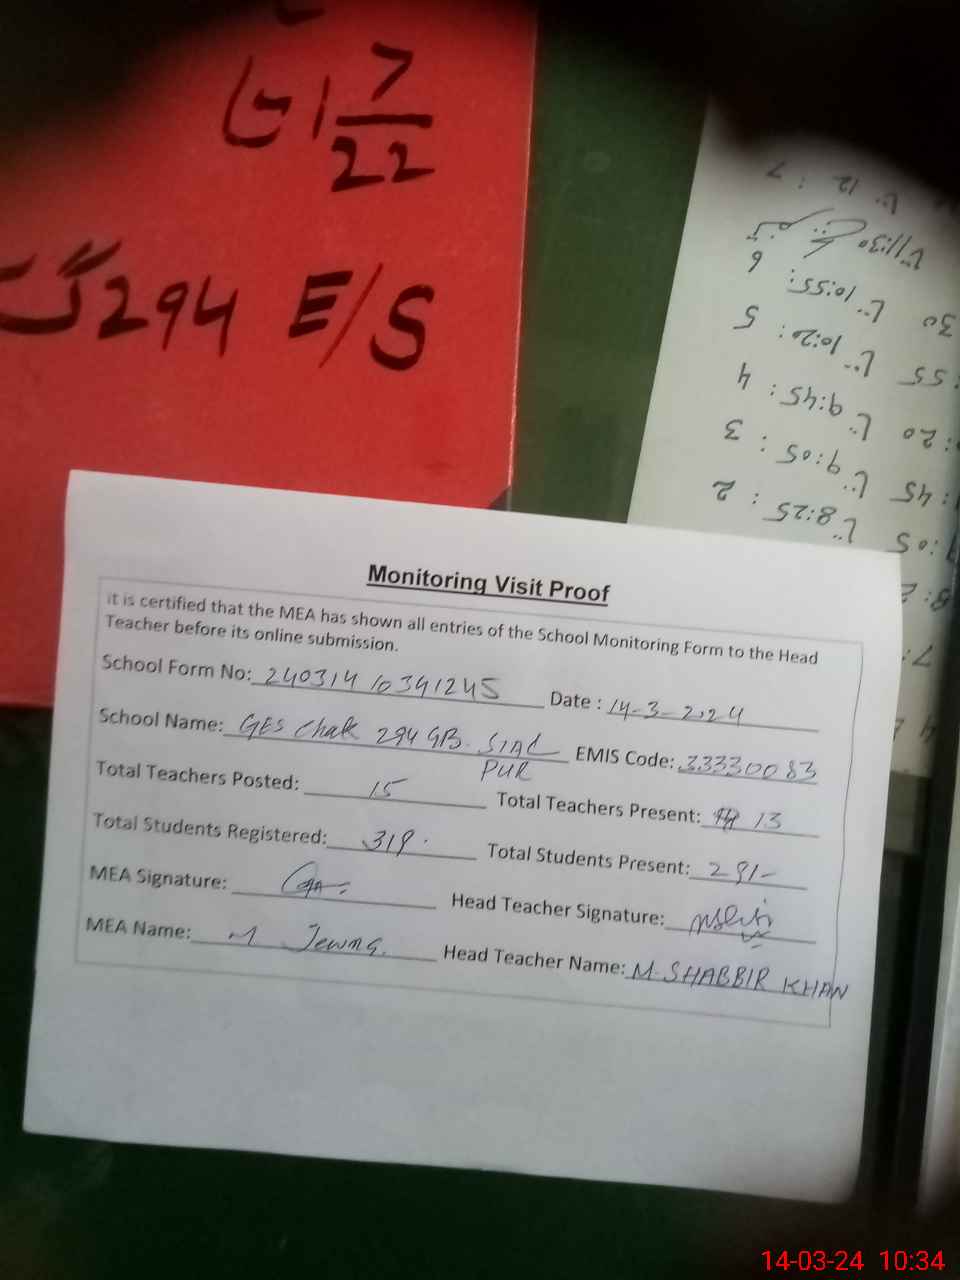 7
22
294 E/S
12 : 7
11:30
30 10:55 : 6
55 10:20 : 5
20 9:45 : 4
45 9:05 : 3
:05 8:25 : 2
Monitoring Visit Proof
it is certified that the MEA has shown all entries of the School Monitoring Form to the Head
Teacher before its online submission.
School Form No: 24031410341245 Date : 14-3-2024
School Name: GES Chak 294 GB. SIAL PUR EMIS Code: 33330083
Total Teachers Posted: 15 Total Teachers Present: 13
Total Students Registered: 319 Total Students Present: 291-
MEA Signature: Head Teacher Signature:
MEA Name: M Head Teacher Name: M. SHABBIR KHAN
14-03-24 10:34